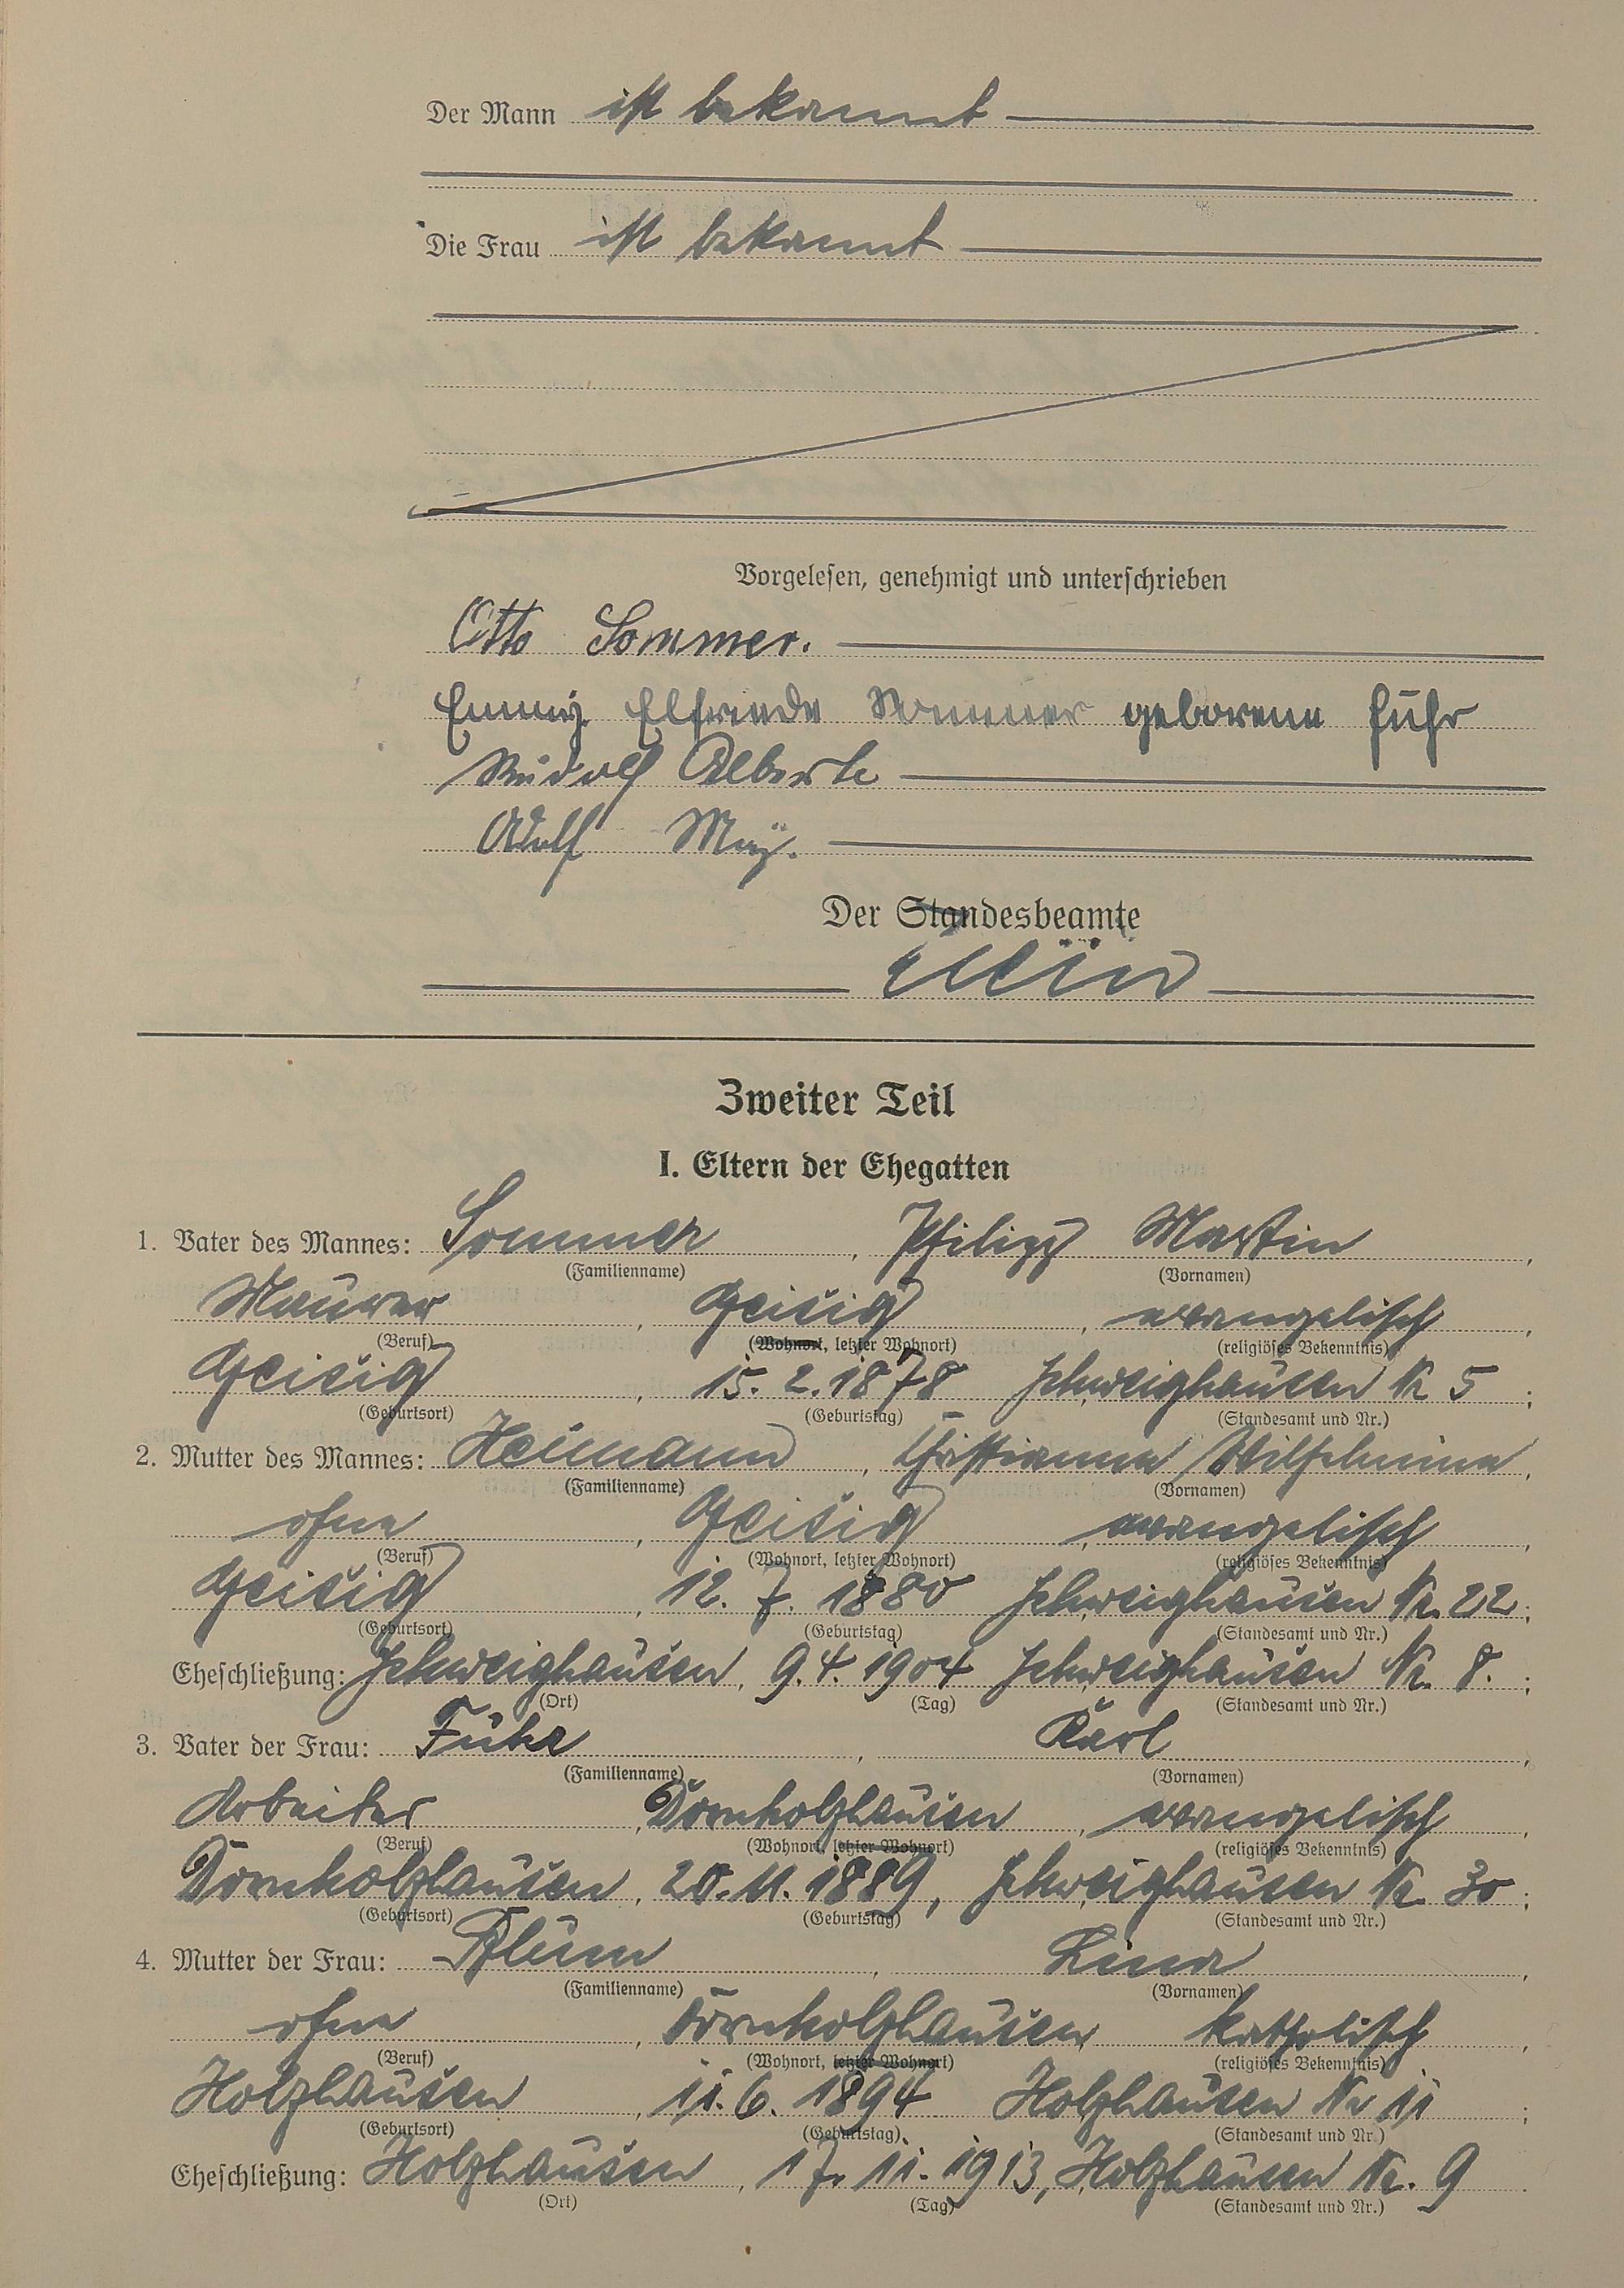 Der Mann ist bekannt
Die Frau ist bekannt
Vorgelesen, genehmigt und unterschrieben
Otto Sommer.
Emmy Elfriede Sommer geborene Führ
Rudolf Alberti
Adolf May.
Der Standesbeamte
Zweiter Teil
I. Eltern der Ehegatten
1. Vater des Mannes: Sommer, Philipp Martin,
(Familienname) (Vornamen)
Maurer, Geisig, evangelisch,
(Beruf) (Wohnort, letzter Wohnort) (religiöses Bekenntnis)
Geisig, 15. 2. 1878 Schweighausen Nr 5;
(Geburtsort) (Geburtstag) (Standesamt und Nr.)
2. Mutter des Mannes: Heimann, Christianne Wilhelmine,
(Familienname) (Vornamen)
ohne, Geisig, evangelisch,
(Beruf) (Wohnort, letzter Wohnort) (religiöses Bekenntnis)
Geisig, 12. 7. 1880 Schweighausen Nr. 22;
(Geburtsort) (Geburtstag) (Standesamt und Nr.)
Eheschließung: Schweighausen, 9. 4. 1904 Schweighausen Nr. 8.;
(Ort) (Tag) (Standesamt und Nr.)
3. Vater der Frau: Führ, Karl,
(Familienname) (Vornamen)
Arbeiter, Dornholzhausen, evangelisch,
(Beruf) (Wohnort, letzter Wohnort) (religiöses Bekenntnis)
Dornholzhausen, 20. 11. 1889, Schweighausen Nr. 30;
(Geburtsort) (Geburtstag) (Standesamt und Nr.)
4. Mutter der Frau: Lina,
(Familienname) (Vornamen)
ohne, Dornholzhausen, katholisch,
(Beruf) (Wohnort, letzter Wohnort) (religiöses Bekenntnis)
Holzhausen, 11. 6. 1894 Holzhausen Nr 11;
(Geburtsort) (Geburtstag) (Standesamt und Nr.)
Eheschließung: Holzhausen, 17. 11. 1913, Holzhausen Nr. 9
(Ort) (Tag) (Standesamt und Nr.)